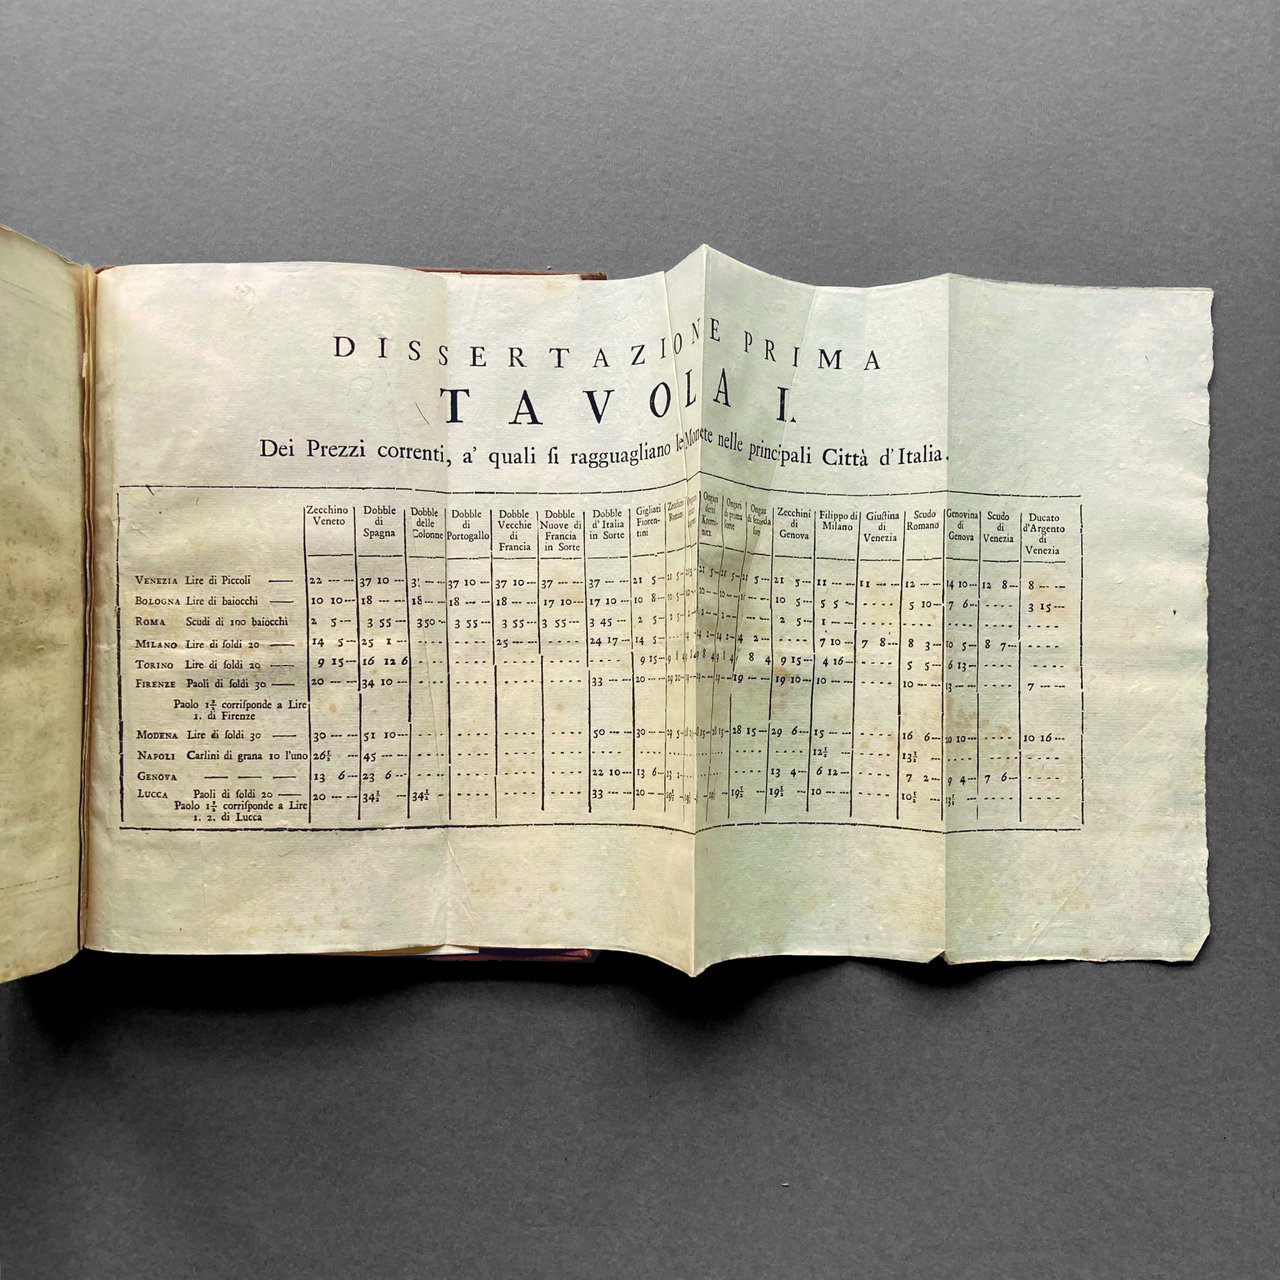 DISSERTAZIONE PRIMA
TAVOLA I.
Dei Prezzi correnti, a' quali ſi ragguagliano le Monete nelle principali Città d'Italia.
Zecchino Veneto
Dobble di Spagna
Dobble delle Colonne
Dobble di Portogallo
Dobble Vecchie di Francia
Dobble Nuove di Francia in Sorte
Dobble d'Italia in Sorte
Gigliati Fiorentini
Zecchino Romano
Ongari
Zecchini di Genova
Filippo di Milano
Giuſtina di Venezia
Scudo Romano
Genovina di Genova
Scudo di Venezia
Ducato d'Argento di Venezia
VENEZIA Lire di Piccoli 22 37 10 37 10 37 10 37 37 21 5 21 5 11 11 12 14 10 12 8 8
BOLOGNA Lire di baiocchi 10 10 18 18 18 18 17 10 17 10 10 8 10 5 5 5 5 10 7 6 3 15
ROMA Scudi di 100 baiocchi 2 5 3 55 3 50 3 55 3 55 3 55 3 45 2 5 2 5 1
MILANO Lire di ſoldi 20 14 5 25 1 25 24 17 14 5 7 10 7 8 8 3 10 5 8 7
TORINO Lire di ſoldi 20 9 15 16 12 6 9 15 8 4 9 15 4 16 5 5 6 13
FIRENZE Paoli di ſoldi 30 20 34 10 33 20 19 19 10 10 10 13 7
Paolo 1 1/2 corriſponde a Lire
1. di Firenze
MODENA Lire di ſoldi 30 30 51 10 50 30 28 15 29 6 15 16 6 20 10 10 16
NAPOLI Carlini di grana 10 l'uno 26 1/2 45 12 1/2 13 1/2
GENOVA 13 6 23 6 22 10 13 6 13 4 6 12 7 2 9 4 7 6
LUCCA Paoli di ſoldi 20 20 34 1/2 34 1/2 33 20 19 1/2 19 1/2 10 10 1/2 13 1/2
Paolo 1 1/2 corriſponde a Lire
1. 2. di Lucca